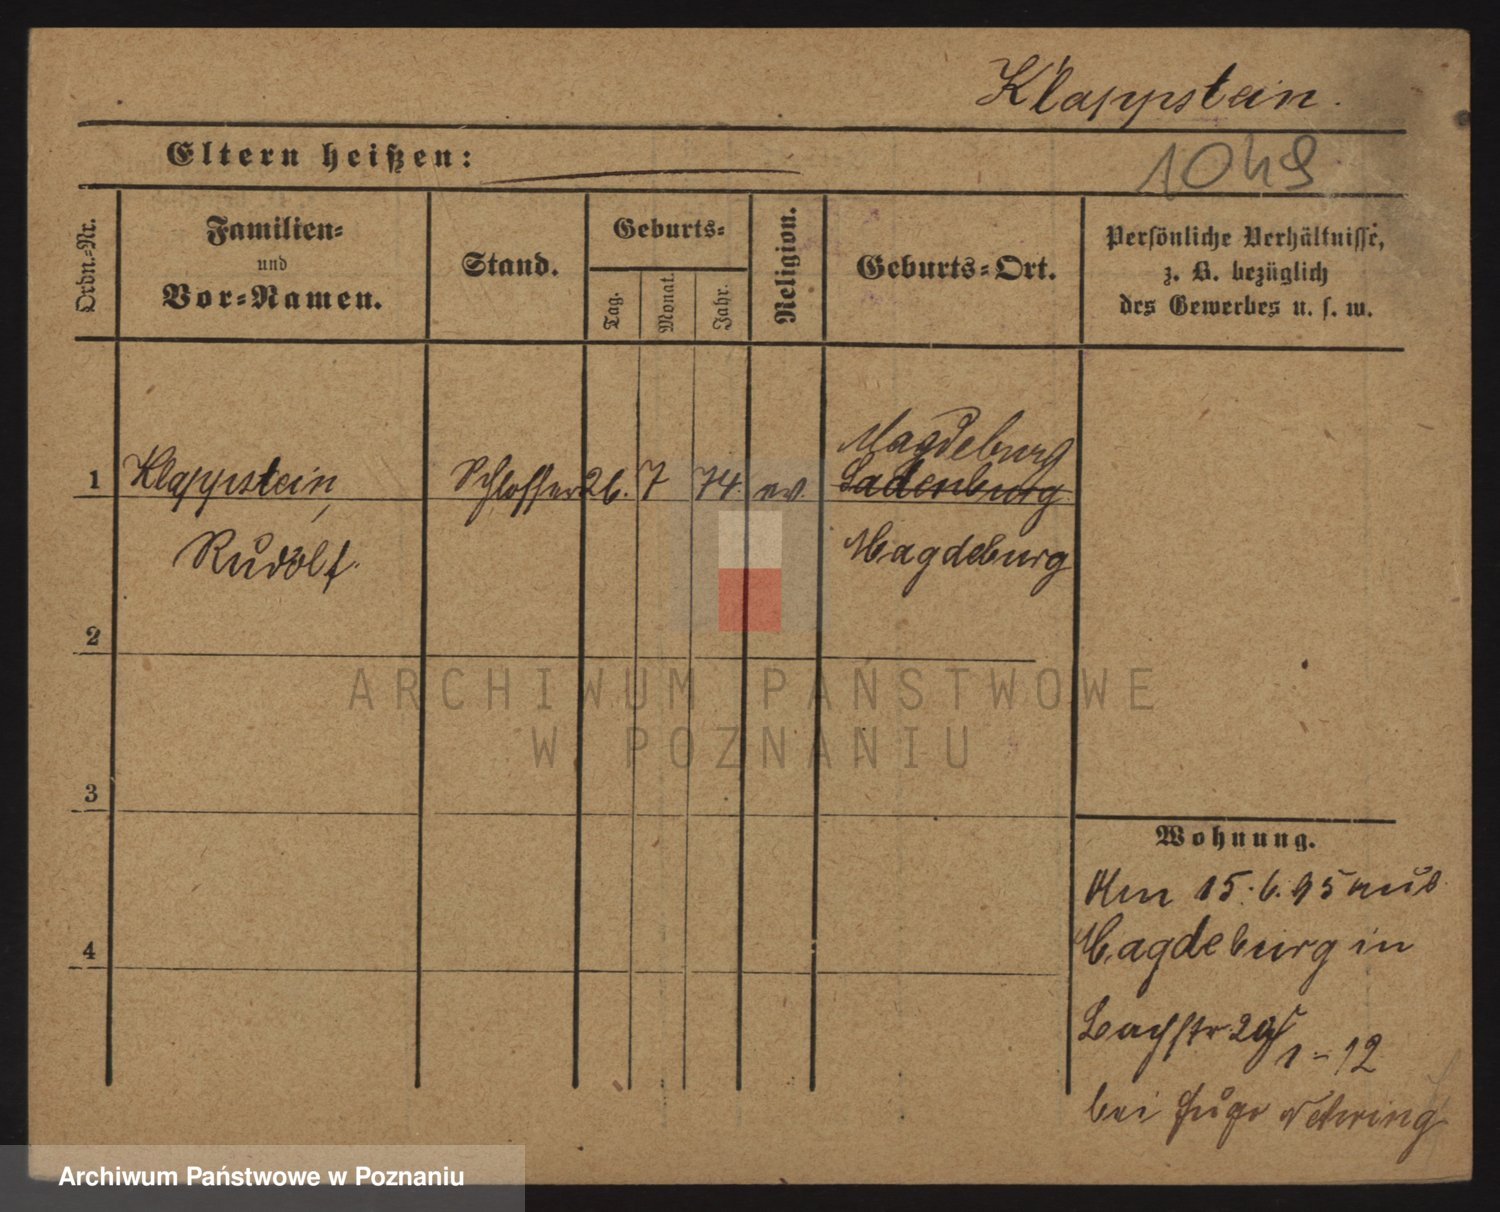 Klappstein.
Eltern heißen:
1049
Ordn.-Nr.
Familien- und Vor-Namen.
Stand.
Geburts-
Tag.
Monat.
Jahr.
Religion.
Geburts-Ort.
Persönliche Verhältnisse,
z. B. bezüglich
des Gewerbes u. s. w.
Magdeburg
1 Klappstein, Schlosser 26. 7 74. ev. Ladenburg
Rudolf. Magdeburg
2
ARCHIWUM PAŃSTWOWE
W POZNANIU
3
Wohnung.
Am 15.6.95 aus
4
Magdeburg in
Bachstr 29
1-12
bei Hugo
Archiwum Państwowe w Poznaniu